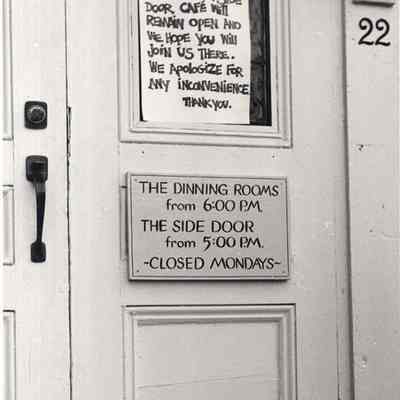 DOOR CAFÉ WILL
REMAIN OPEN AND
WE HOPE YOU WILL
JOIN US THERE..
WE APOLOGIZE FOR
ANY INCONVENIENCE
THANK YOU.
22
THE DINNING ROOMS
from 6:00 P.M.
THE SIDE DOOR
from 5:00 P.M.
~CLOSED MONDAYS~